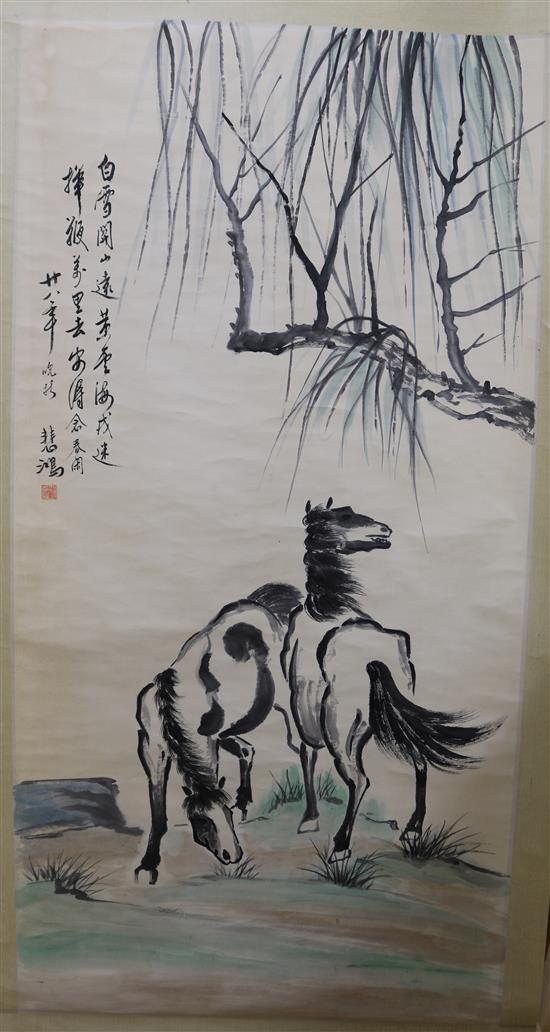 白雪關山遠黃雲海戍迷
揮鞭萬里去安得念春閨
廿八年
悲鴻